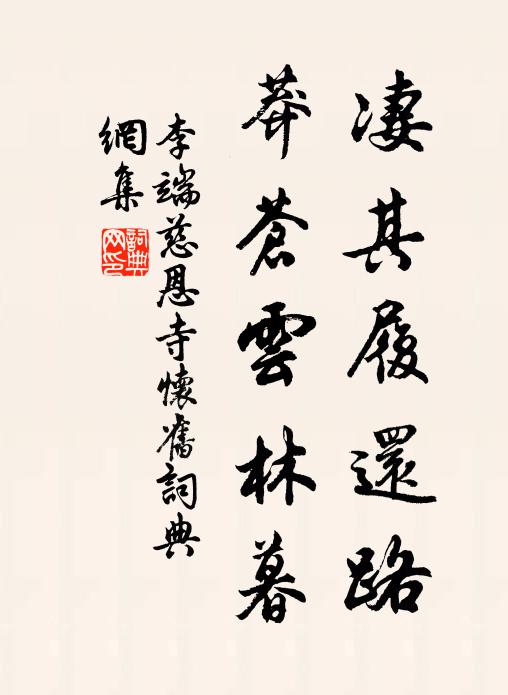 凄其履還路
莽蒼雲林暮
李端慈恩寺懷舊詞典
網集
詞典
网印